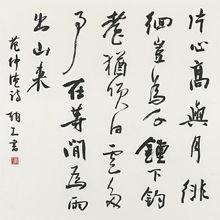 片心高與月徘
徊豈為千鍾下釣
臺猶笑白雲多
事在等閒為雨
出山來
范仲淹詩 書